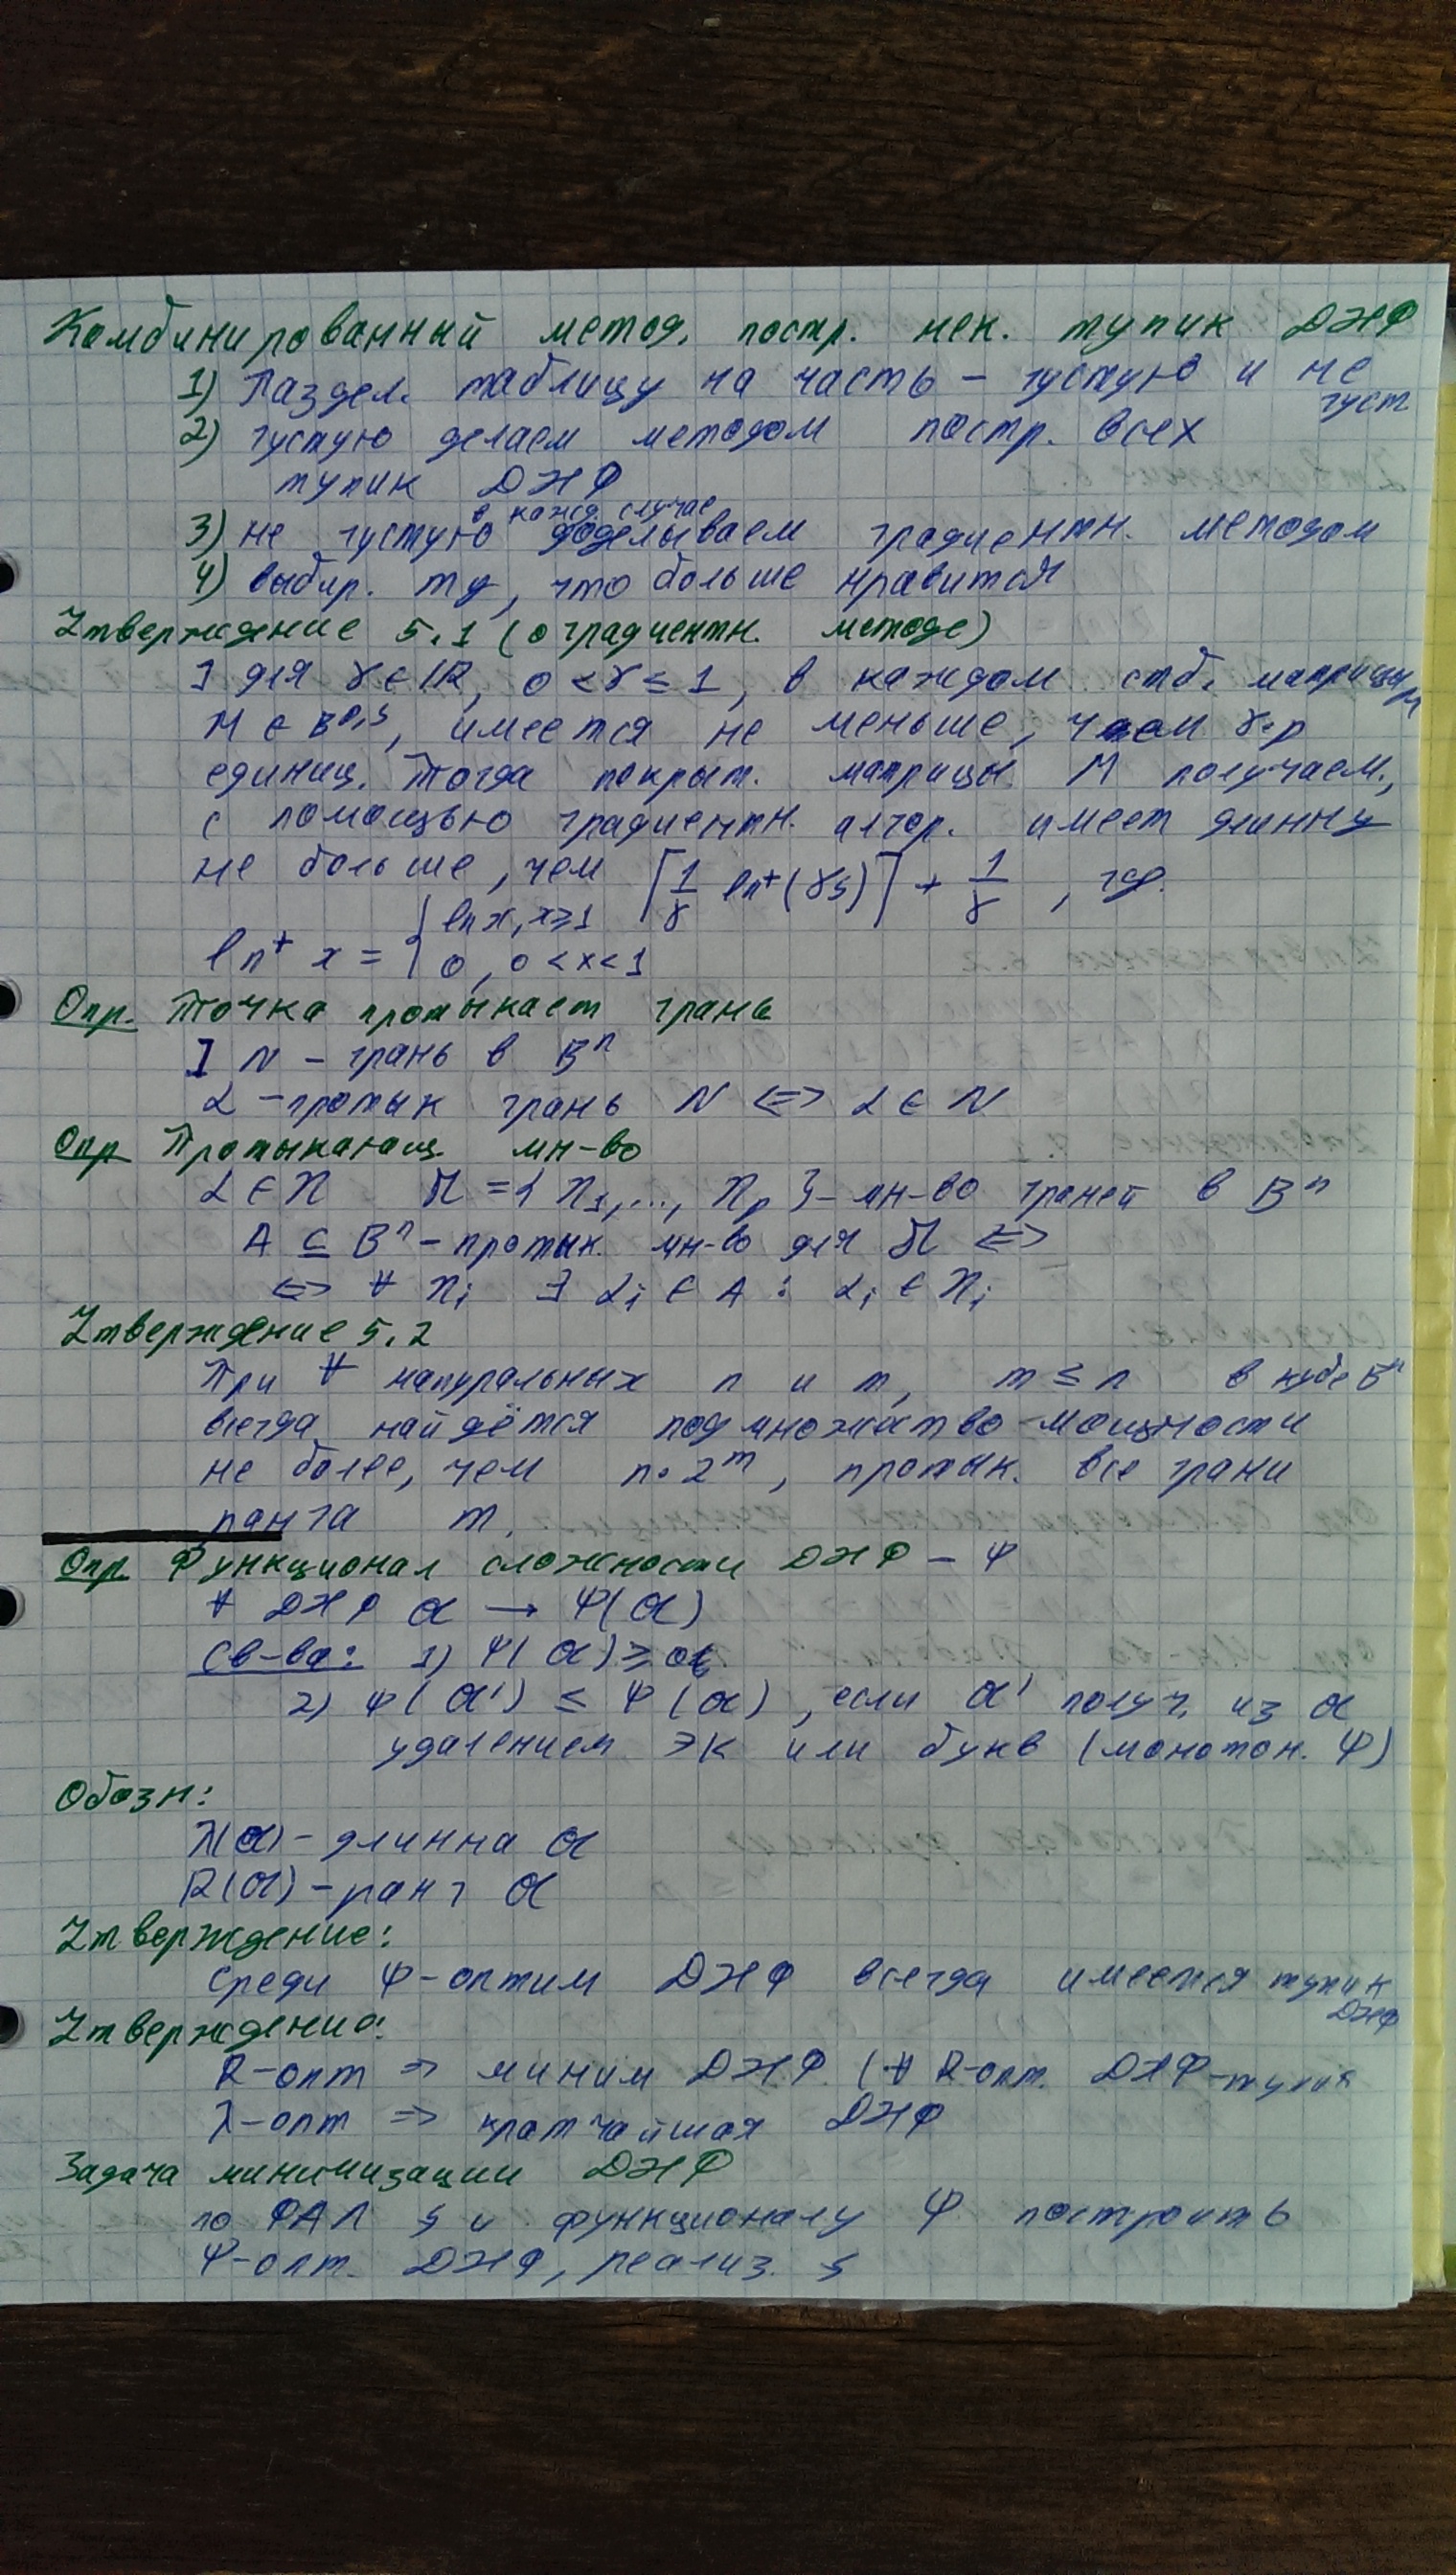 Комбинированный метод. постр. нек. тупик ДНФ
1) Раздел. таблицу на часть – густую и не густ
2) густую делаем методом постр. всех
тупик ДНФ
3) не густую в кажд. случае доделываем градиентн. методом
4) выбир. ту, что больше нравится
Утверждение 5.1 (о градиентн. методе)
] для γ ∈ ℝ, 0 < γ ≤ 1, в каждом стб. матрицы M
M ∈ B^{p,s}, имеется не меньше, чем γ·p
единиц. Тогда покрыт. матрицы M получаем.,
с помощью градиентн. алгор. имеет длинну
не больше, чем ⌈1/γ ln⁺(γs)⌉ + 1/γ, гд.
ln⁺ x = { ln x, x ≥ 1
0, 0 < x < 1
Опр. Точка протыкает грань
] N – грань в Bⁿ
α – протык грань N ⇔ α ∈ N
Опр Протыкающ. мн-во
α ∈ N 𝔑 = { N₁, ..., Nₚ } – мн-во граней в Bⁿ
A ⊆ Bⁿ – протык. мн-во для 𝔑 ⇔
⇔ ∀ Nᵢ ∃ αᵢ ∈ A : αᵢ ∈ Nᵢ
Утверждение 5.2
При ∀ натуральных n и m, m ≤ n в кубе Bⁿ
всегда найдётся подмножество мощности
не более, чем n·2ᵐ, протык. все грани
ранга m.
Опр Функционал сложности ДНФ – Ψ
∀ ДНФ α → Ψ(α)
Св-ва: 1) Ψ(α) ≥ 0
2) Ψ(α') ≤ Ψ(α), если α' получ. из α
удалением ЭК или букв (монотон. Ψ)
Обозн:
λ(α) – длинна α
R(α) – ранг α
Утверждение:
Среди Ψ-оптим ДНФ всегда имеется тупик ДНФ
Утверждение:
R-опт ⇒ миним ДНФ (∀ R-опт. ДНФ – тупик
λ-опт ⇒ кратчайшая ДНФ
Задача минимизации ДНФ
по ФАЛ f и функционалу Ψ построить
Ψ-опт. ДНФ, реализ. f